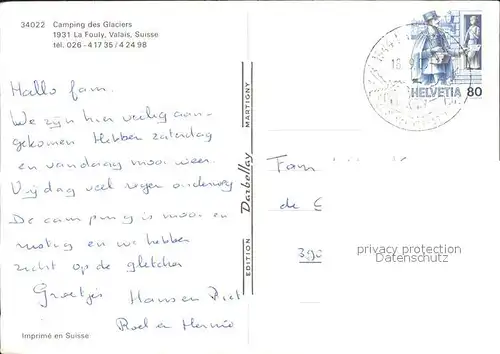 34022 Camping des Glaciers
1931 La Fouly, Valais, Suisse
tél. 026 - 4 17 35 / 4 24 98
Hallo fam.
We zijn hier veilig aan-
gekomen Hebben zaterdag
en vandaag mooi weer.
Vrijdag veel regen onderweg
De camping is mooi en
rustig en we hebben
zicht op de gletcher
Groetjes Hans en Piet
Roel en Hennie
Imprimé en Suisse
EDITION Darbellay MARTIGNY
HELVETIA 80
Fam
de
privacy protection
Datenschutz